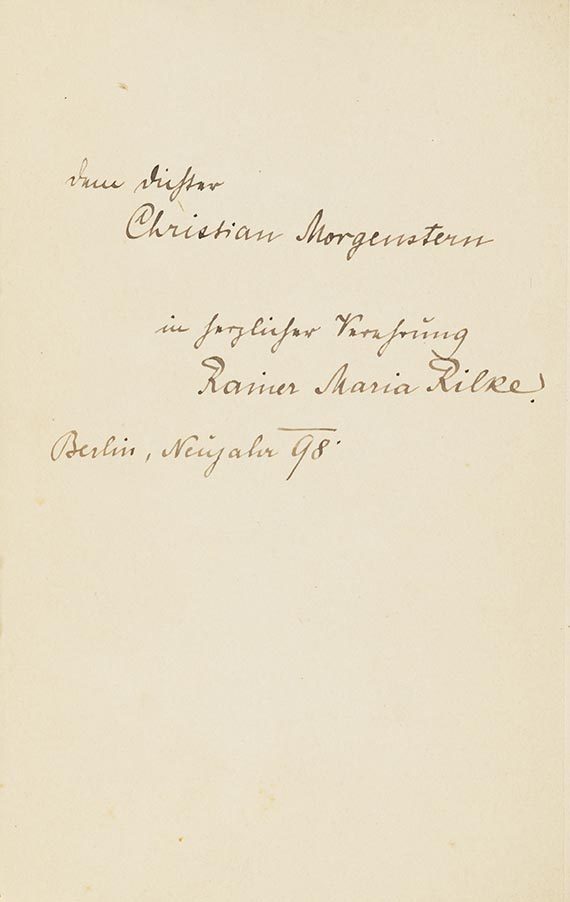 dem Dichter
Christian Morgenstern
in herzlicher Verehrung
Rainer Maria Rilke.
Berlin, Neujahr 98.